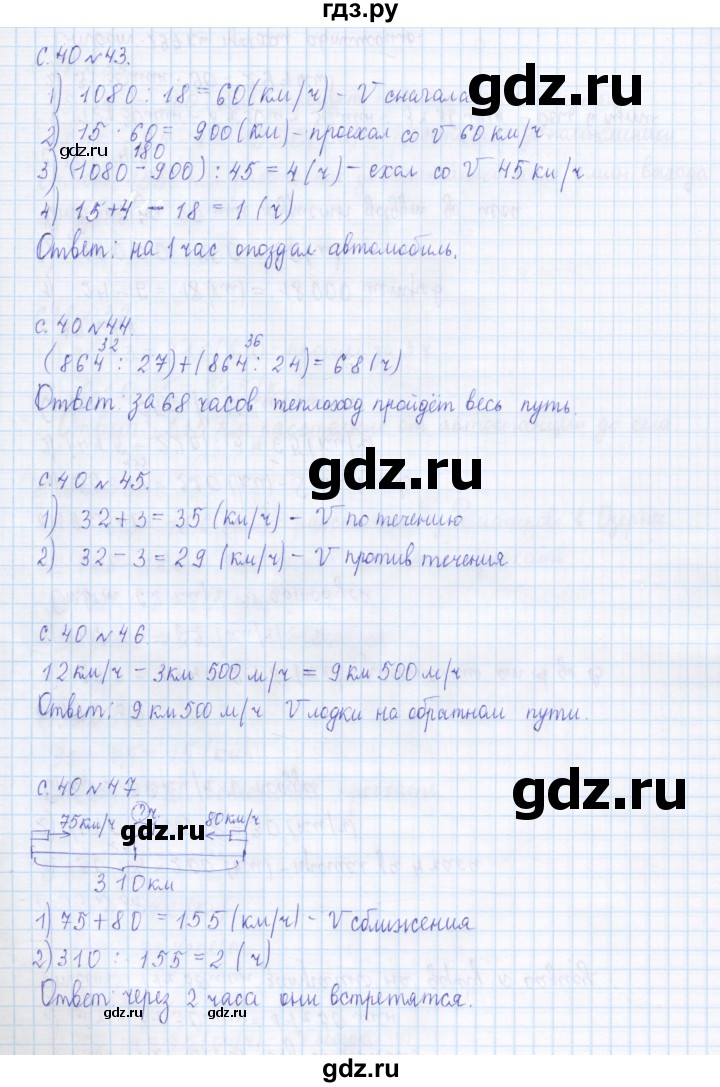 гдз.ру
с. 40 № 43.
1) 1080 : 18 = 60 (км/ч) - V сначала
gdz.ru
2) 15 · 60 = 900 (км) - проехал со V 60 км/ч
gdz.ru
180
3) (1080 - 900) : 45 = 4 (ч) - ехал со V 45 км/ч
4) 15+4 - 18 = 1 (ч)
Ответ: на 1 час опоздал автомобиль.
с. 40 № 44.
32 36
(864 : 27)+(864 : 24) = 68 (ч)
Ответ: за 68 часов теплоход пройдёт весь путь.
gdz.ru
с. 40 № 45.
1) 32+3 = 35 (км/ч) - V по течению
2) 32 - 3 = 29 (км/ч) - V против течения
gdz.ru
с. 40 № 46
12 км/ч - 3 км 500 м/ч = 9 км 500 м/ч
Ответ: 9 км 500 м/ч V лодки на обратном пути.
gdz.ru
с. 40 № 47
?ч
75 км/ч 80 км/ч
gdz.ru
310 км
1) 75 + 80 = 155 (км/ч) - V сближения
2) 310 : 155 = 2 (ч)
gdz.ru
Ответ: через 2 часа они встретятся.
gdz.ru
gdz.ru